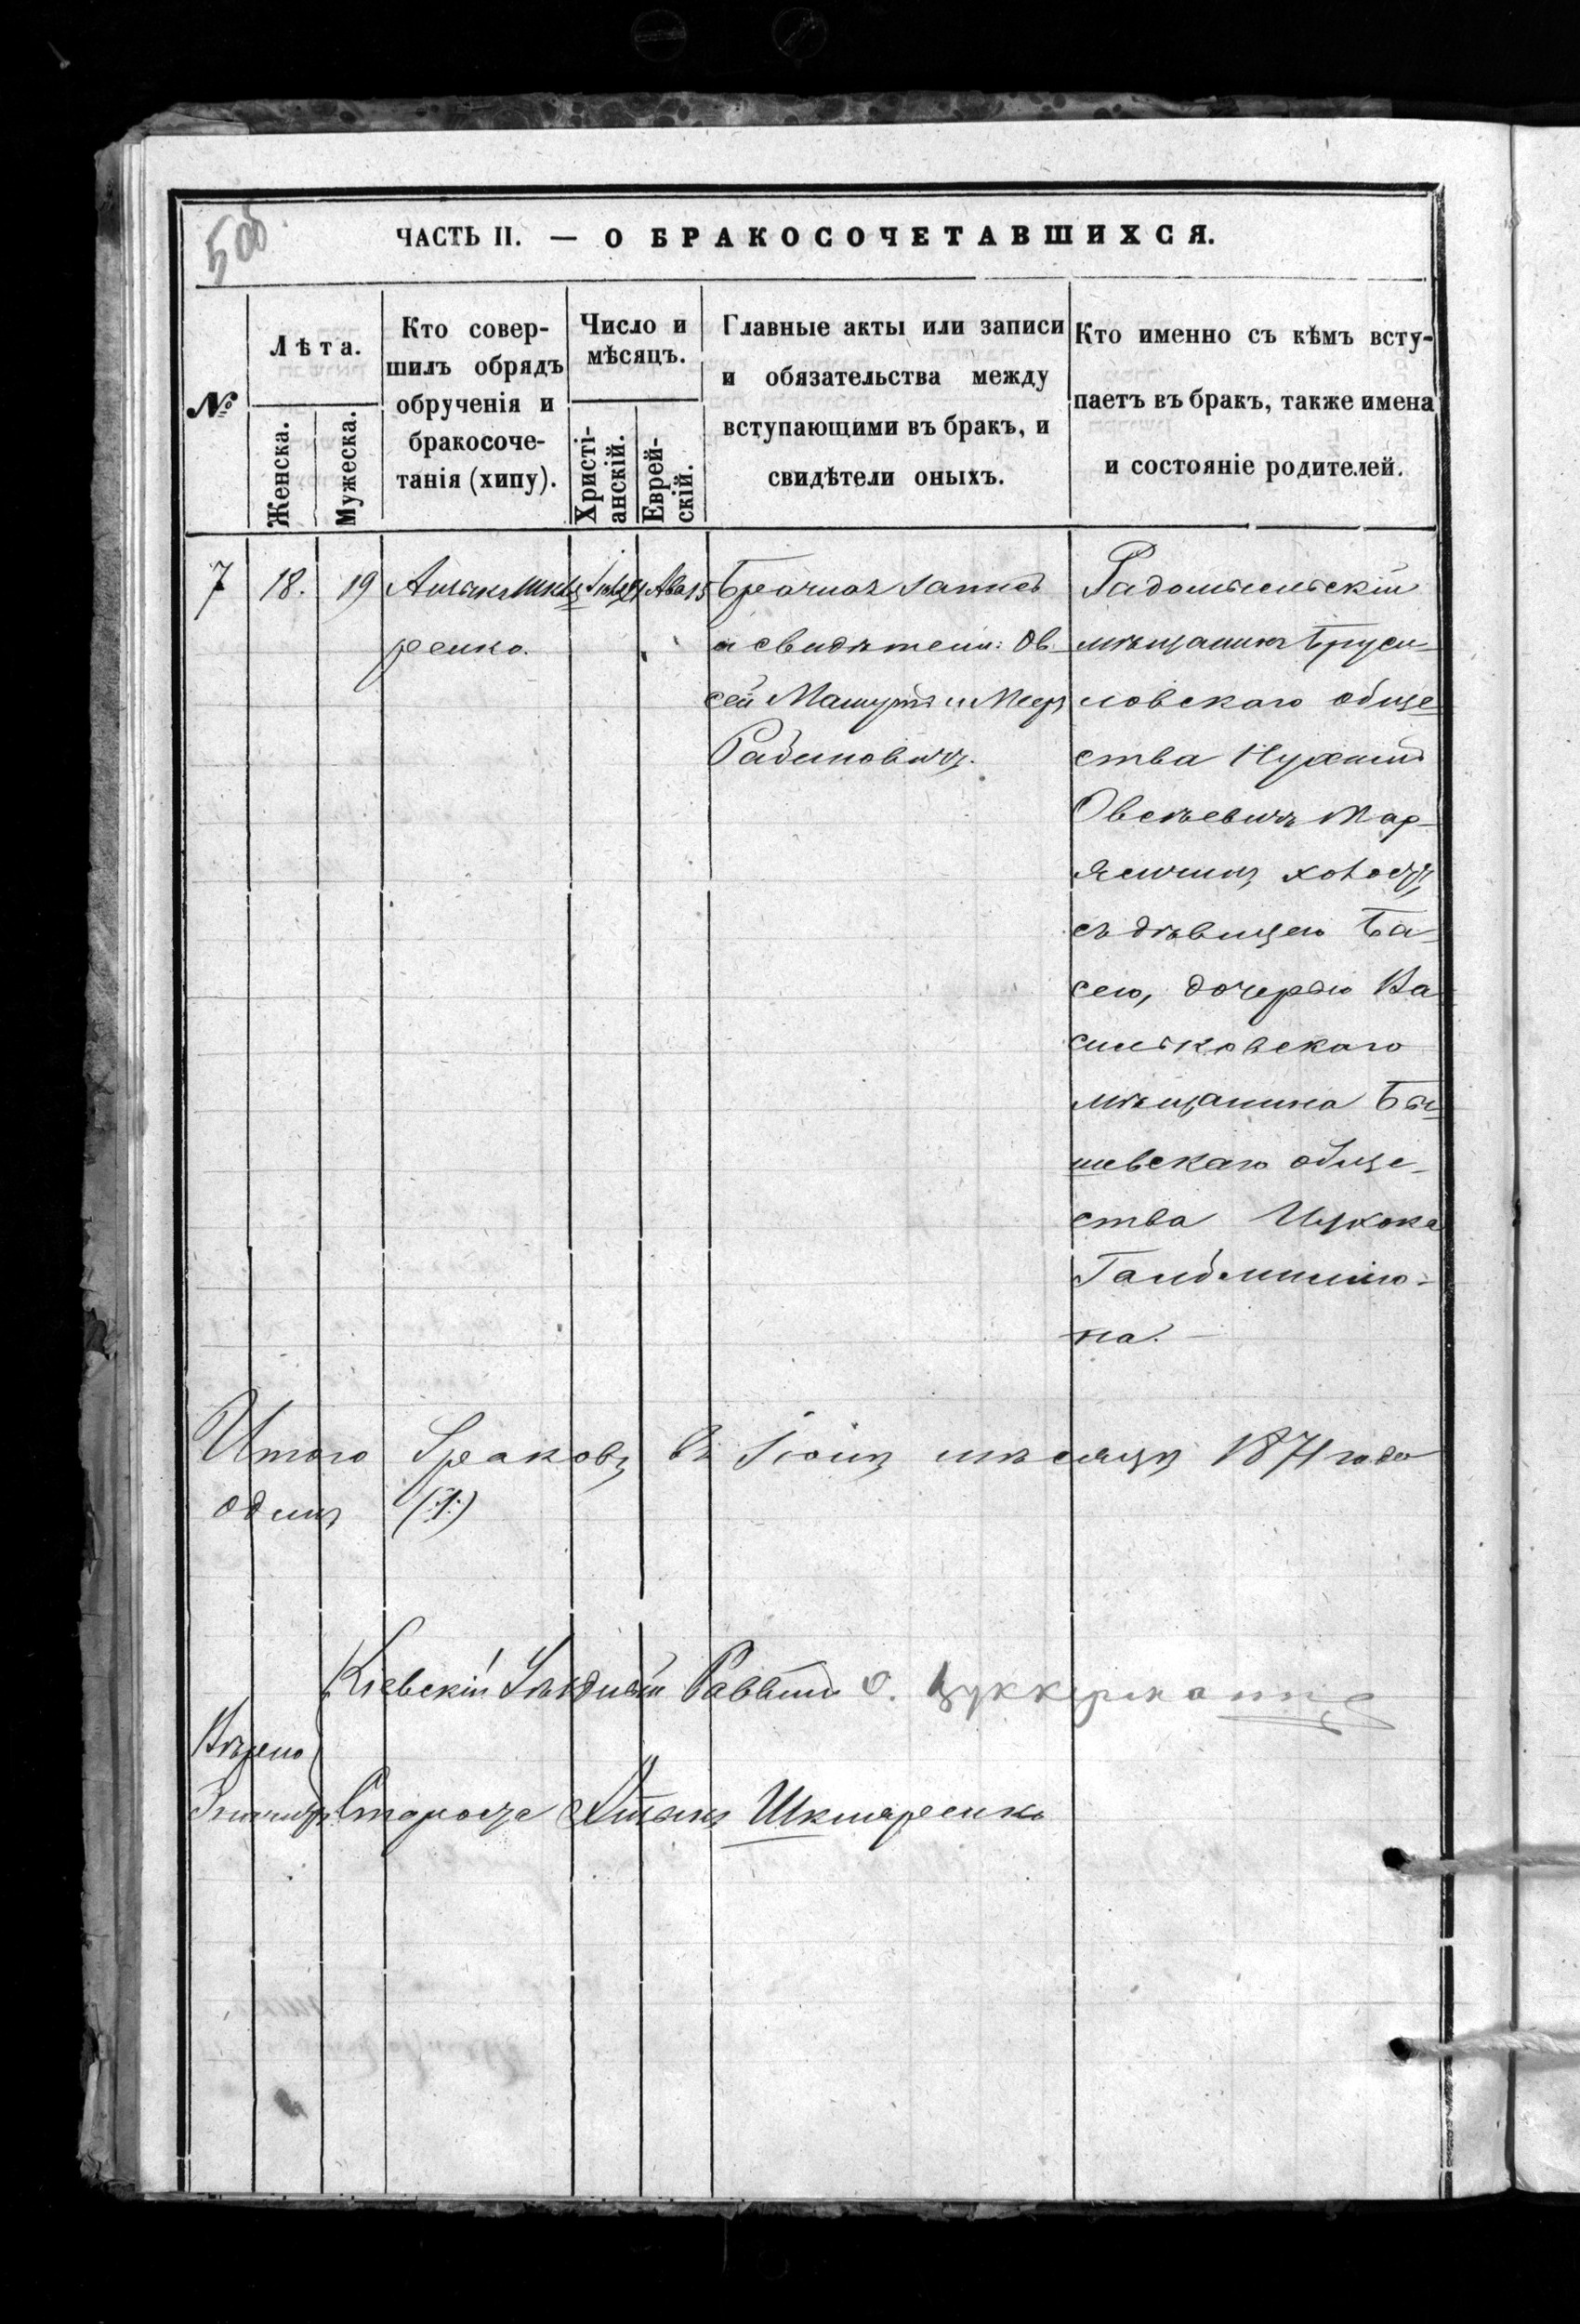 5 об.
ЧАСТЬ II. — О БРАКОСОЧЕТАВШИХСЯ.
№
Лѣта.
Женска.
Мужеска.
Кто совер-
шилъ обрядъ
обрученія и
бракосоче-
танія (хипу).
Число и
мѣсяцъ.
Христі-
анскій.
Еврей-
скій.
Главные акты или записи
и обязательства между
вступающими въ бракъ, и
свидѣтели оныхъ.
Кто именно съ кѣмъ всту-
паетъ въ бракъ, также имена
и состояніе родителей.
7
18.
19
ренко.
Ава 15
Брачная запись
и свидѣтели: Ов-
сей Машутъ и Меер
Рабиновичъ.
Радомысльскій
мѣщанинъ Бруси-
ловскаго обще
ства Нухимъ
Овсѣевичъ Мар-
холостъ
съ дѣвицею Ба-
сею, дочерью Ва
сильковскаго
мѣщанина Бы
шевскаго обще-
ства Ицкока
на.
Итого браковъ въ Іюлѣ мѣсяцѣ 1871 года
одинъ (:1:)
Кіевскій Уѣздный Раввинъ О. Цуккерманъ
Вѣрно
Староста Шкляренко